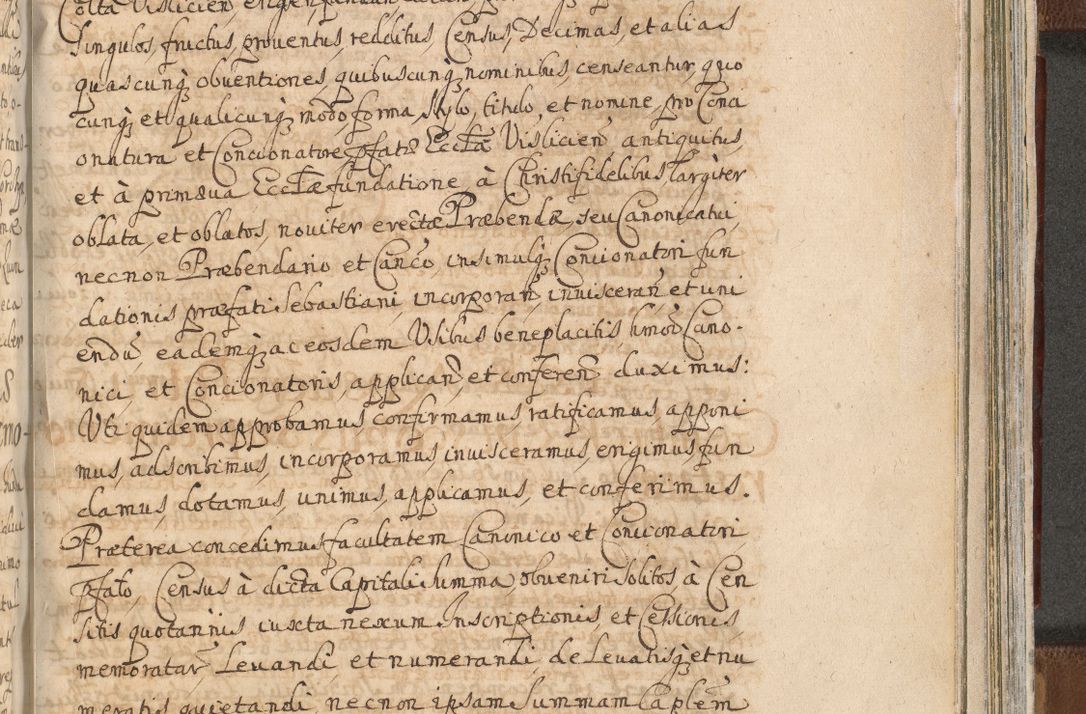 Colta Vislicien̄
singulos, fructus, proventus, redditus, Census, Decimas, et alias
quascunq́; obventiones, quibuscunq́; nominibus, censeantur, quo
cunq́; et qualicunq́; modo, forma, stylo, titulo, et nomine, pro Conci
onatura et Concionatore pfatæ Ecclæ Vislicien̄ antiquitus,
et à primæva Ecclæ fundatione, à Christifidelibus, largiter
oblata, et oblatos, noviter erectæ Præbendæ, seu Canonicatui,
necnon Præbendario et Canco, insimulq́; Concionatori fun
dationis præfati Sebastiani, incorporan̄, invisceran̄ et uni
endū, eademq́; ac eosdem Usibus beneplacitis hmōi Cano-
nici, et Concionatoris, applican̄, et conferen̄ duximus:
Uti quidem approbamus, confirmamus, ratificamus, apponi
mus, adscribimus, incorporamus, invisceramus, erigimus, fun
damus, dotamus, unimus, applicamus, et conferimus.
Præterea concedimus facultatem Canonico et Concionatori
pfato, Census à dicta Capitali summa, obveniri solitos à Cen
sitis quotannis iuxta nexum Inscriptionis, et Cessionis,
memoratar̄ Levandi, et numerandi de Levatisq́; et nu
meratis quietandi necnon ipsam Summam Caplēm